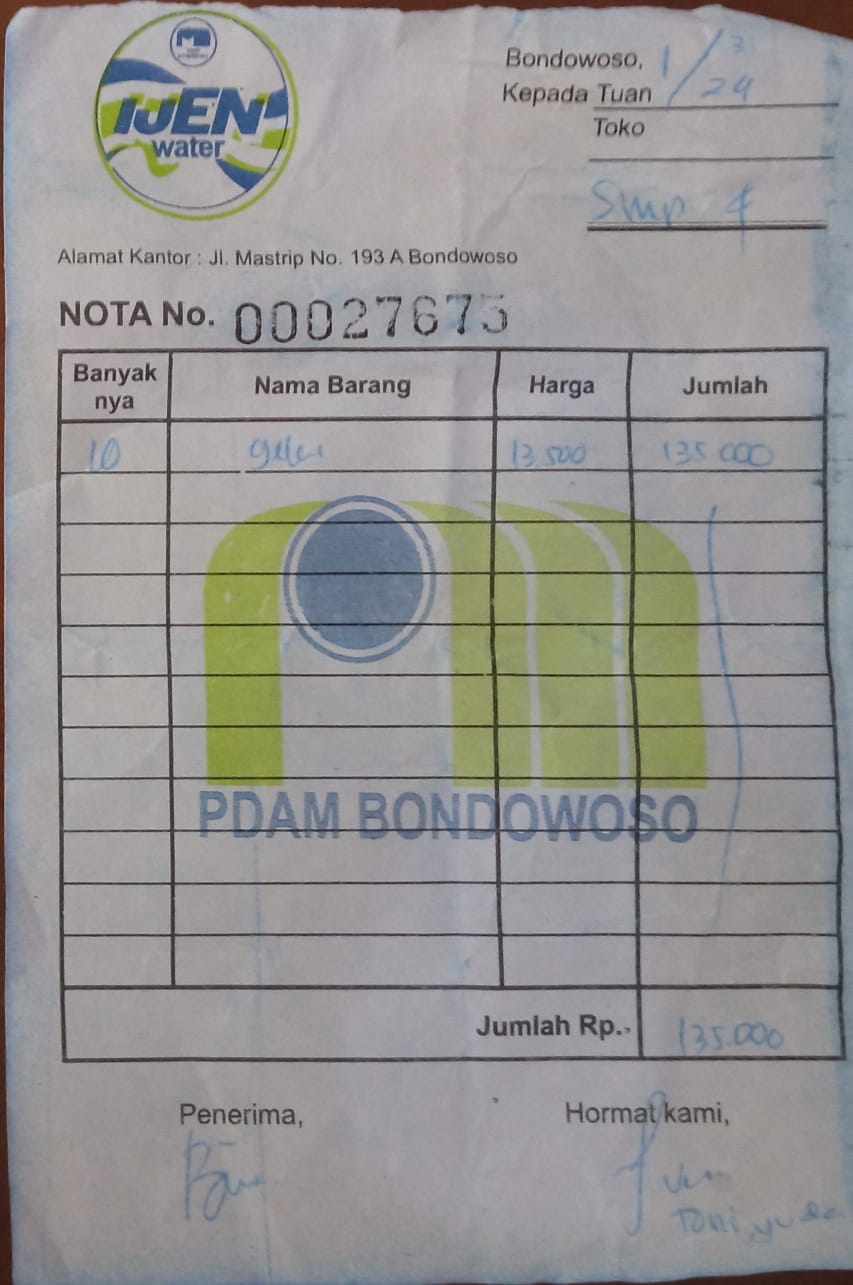 IJEN
water
Bondowoso, 1/3
Kepada Tuan 24
Toko
Smp 4
Alamat Kantor : Jl. Mastrip No. 193 A Bondowoso
NOTA No. 00027675
Banyak nya Nama Barang Harga Jumlah
10 13.500 135 000
PDAM BONDOWOSO
Jumlah Rp. 135.000
Penerima, Hormat kami,
Toni yuda